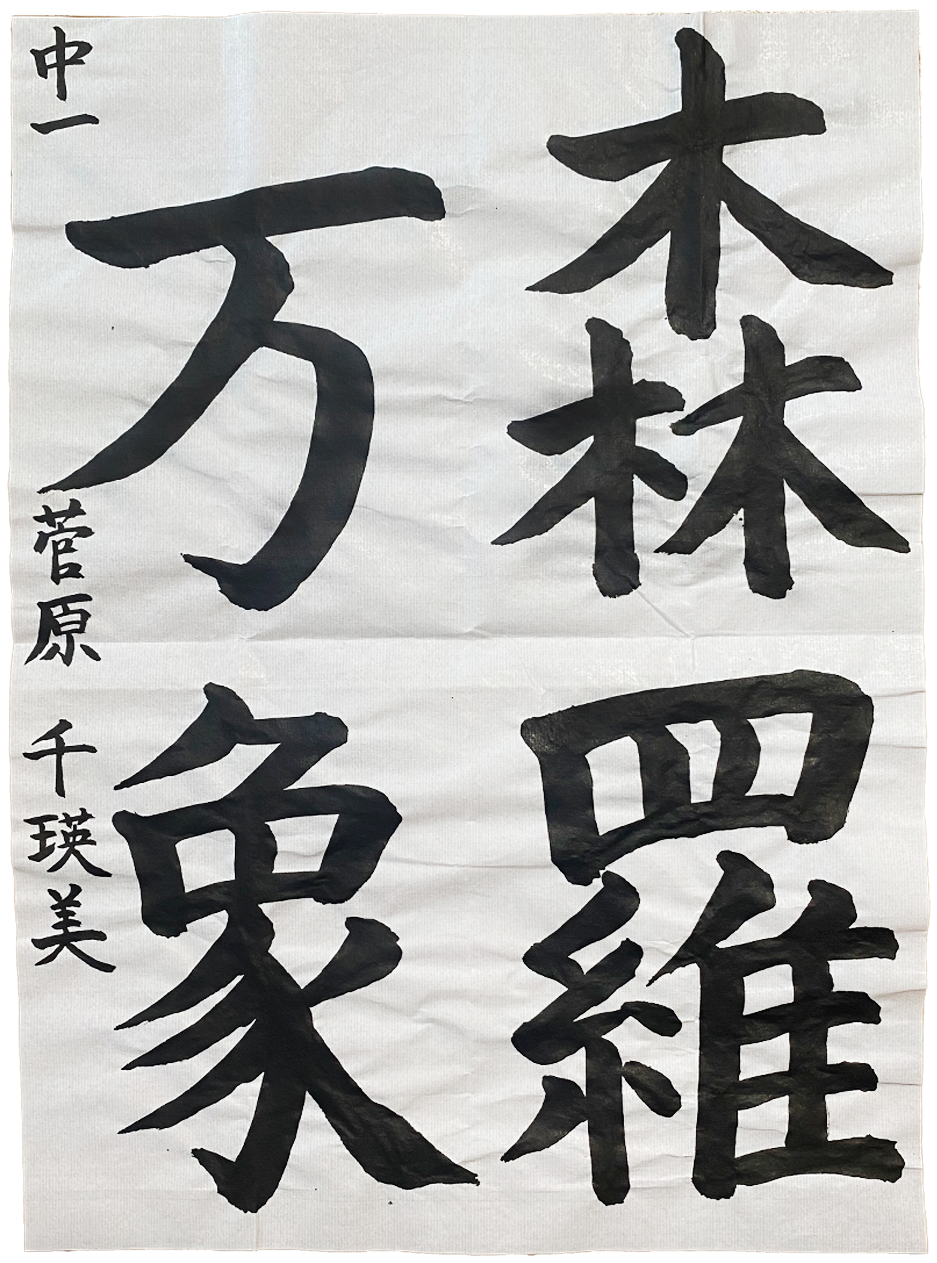 森羅
万象
中一 菅原 千瑛美